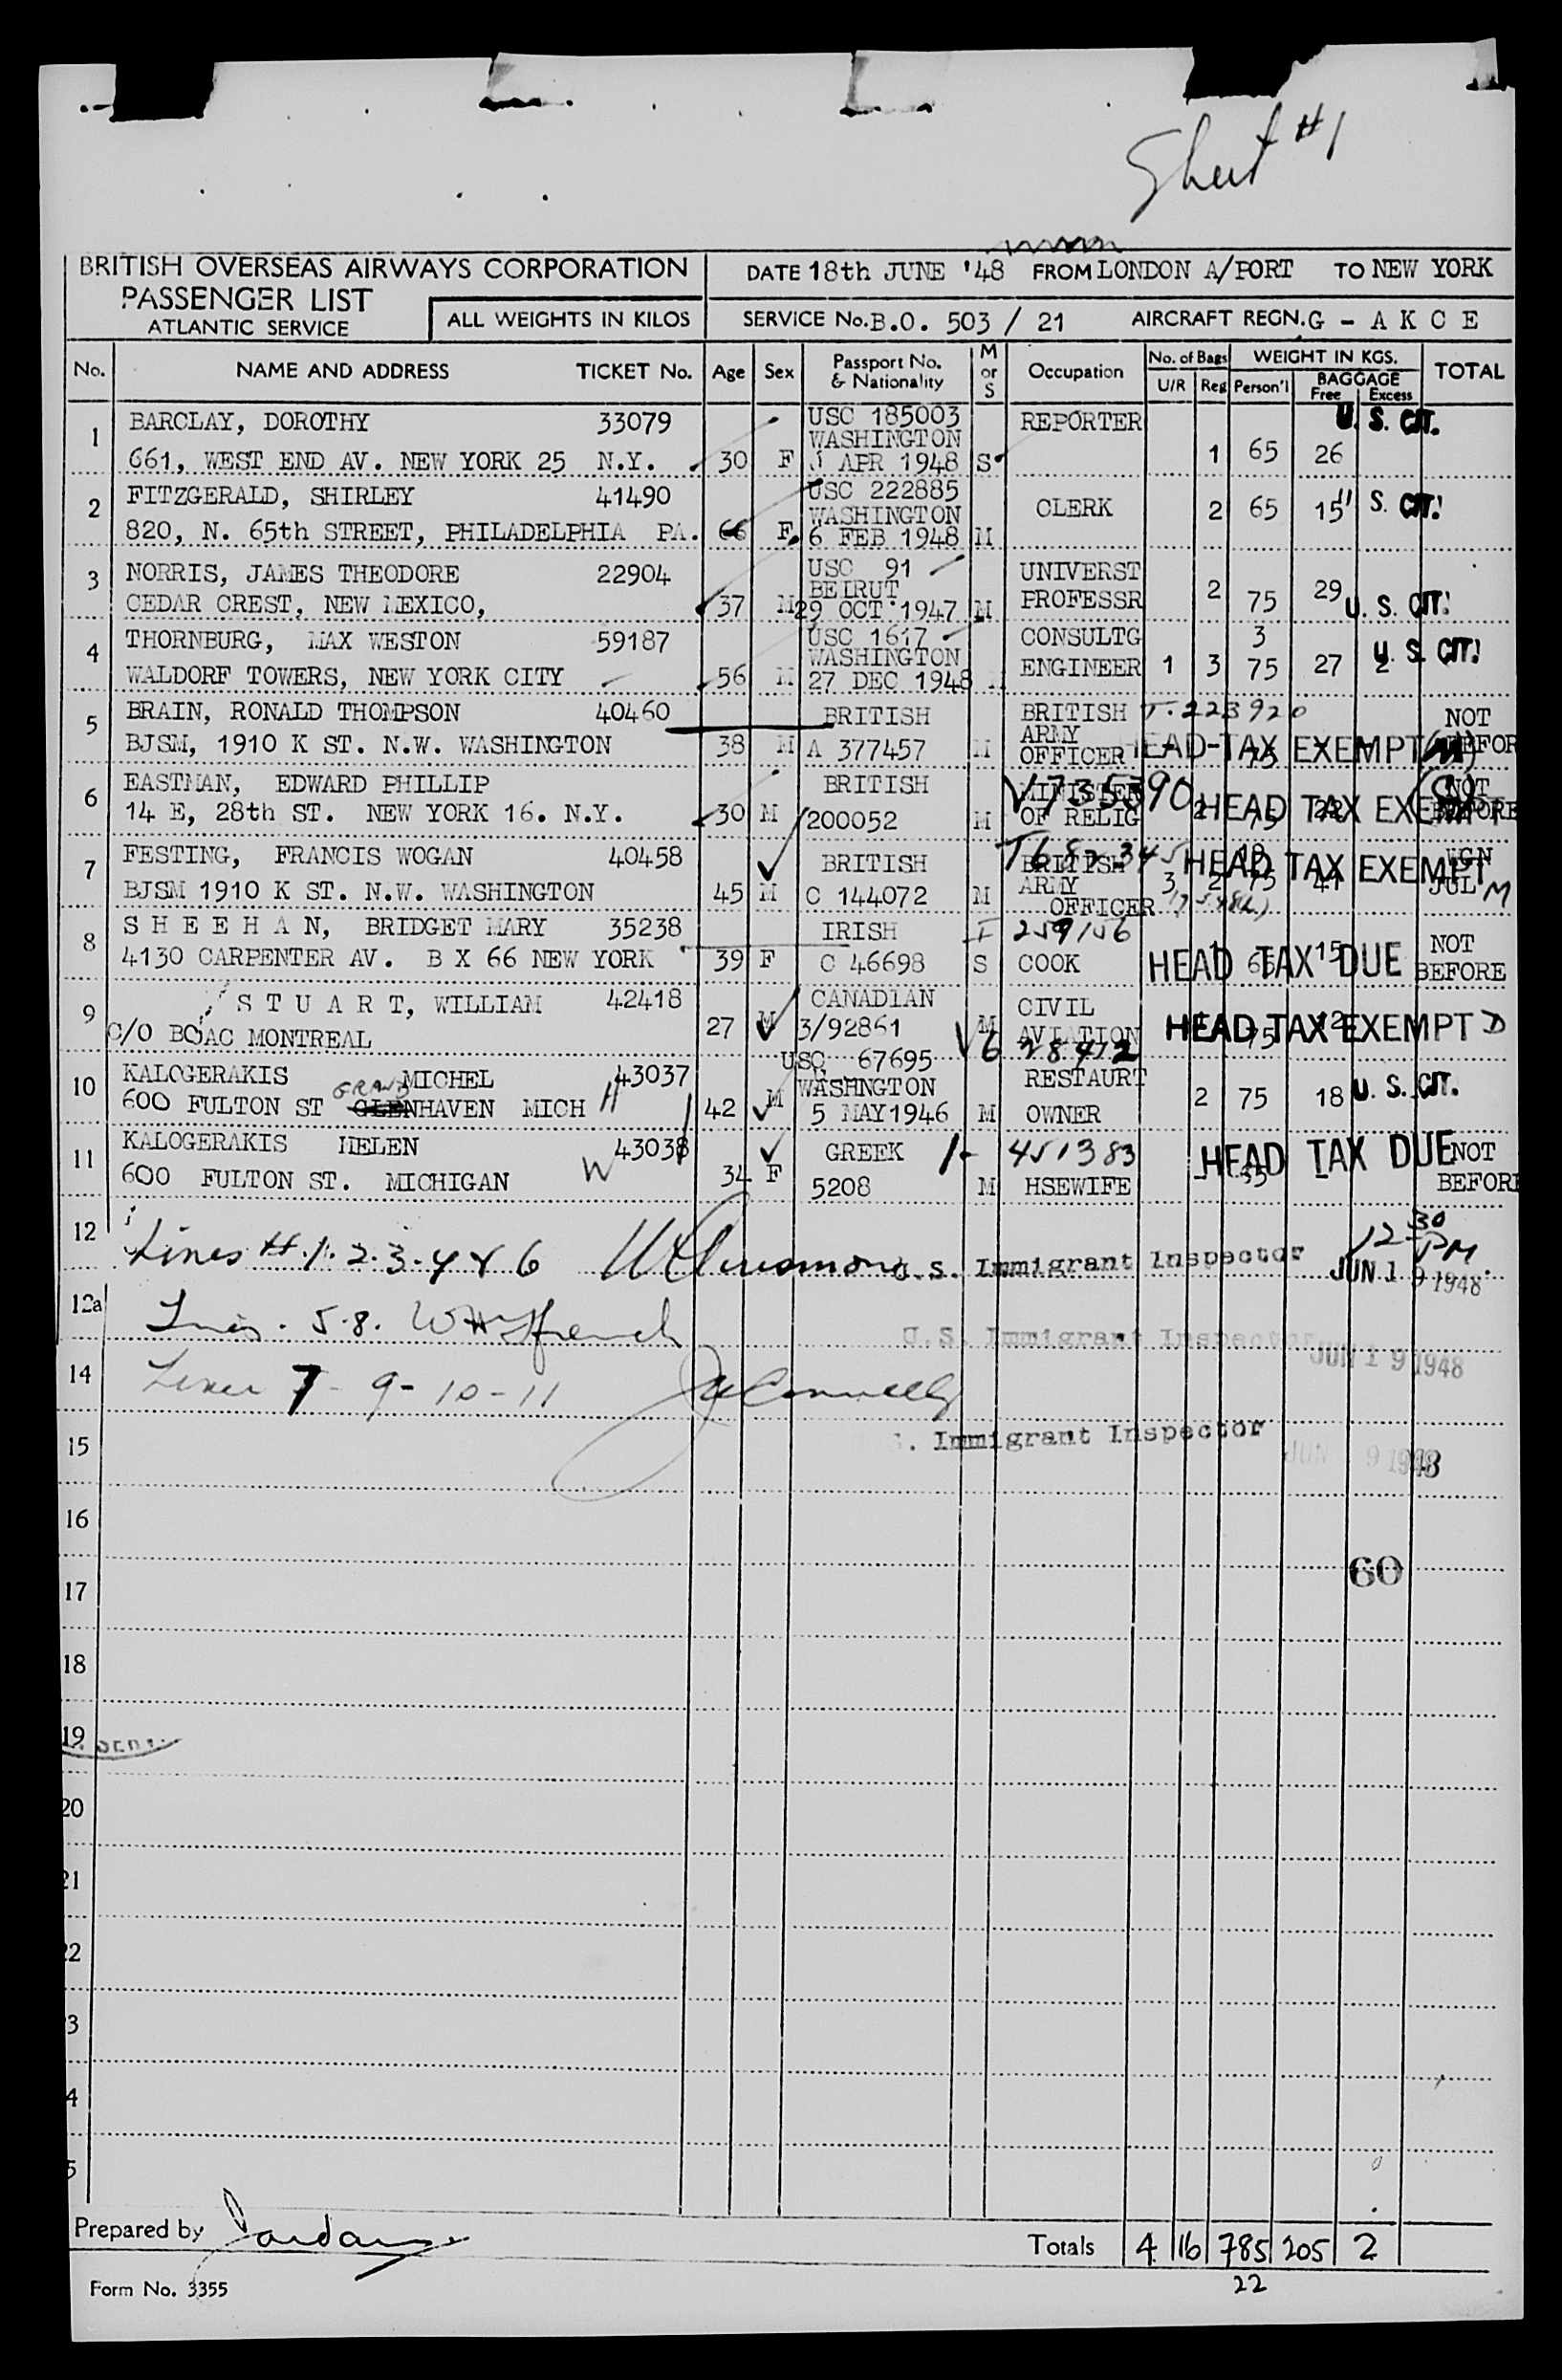 Sheet #1
BRITISH OVERSEAS AIRWAYS CORPORATION
PASSENGER LIST
ATLANTIC SERVICE
ALL WEIGHTS IN KILOS
DATE 18th JUNE '48 FROM LONDON A/PORT TO NEW YORK
SERVICE No. B.O. 503 / 21 AIRCRAFT REGN. G - A K C E
No. NAME AND ADDRESS TICKET No. Age Sex Passport No. & Nationality M or S Occupation No. of Bags U/R Reg WEIGHT IN KGS. Person'l BAGGAGE Free Excess TOTAL
1 BARCLAY, DOROTHY 33079 USC 185003 REPORTER U. S. CIT.
WASHINGTON
661, WEST END AV. NEW YORK 25 N.Y. 30 F APR 1948 S 1 65 26
2 FITZGERALD, SHIRLEY 41490 USC 222885 CLERK 2 65 15 S. CIT.
WASHINGTON
820, N. 65th STREET, PHILADELPHIA PA. 66 F 6 FEB 1948 M
3 NORRIS, JAMES THEODORE 22904 USC 91 UNIVERST
BEIRUT
CEDAR CREST, NEW MEXICO, 37 M 29 OCT 1947 M PROFESSR 2 75 29 U. S. CIT.
4 THORNBURG, MAX WESTON 59187 USC 1617 CONSULTG 3
WASHINGTON
WALDORF TOWERS, NEW YORK CITY 56 M 27 DEC 1948 ENGINEER 1 3 75 27 2 U. S. CIT.
5 BRAIN, RONALD THOMPSON 40460 BRITISH BRITISH T. 223920 NOT
BJSM, 1910 K ST. N.W. WASHINGTON 38 M A 377457 M ARMY OFFICER HEAD TAX EXEMPT BEFOR
6 EASTMAN, EDWARD PHILLIP BRITISH MINISTER V735390 NOT
14 E, 28th ST. NEW YORK 16. N.Y. 30 M 200052 M OF RELIG HEAD TAX EXEMPT BEFORE
7 FESTING, FRANCIS WOGAN 40458 BRITISH BRITISH HEAD TAX EXEMPT
BJSM 1910 K ST. N.W. WASHINGTON 45 M C 144072 M ARMY OFFICER 3 2 75 JUL M
8 S H E E H A N, BRIDGET MARY 35238 IRISH I 259156 NOT
4130 CARPENTER AV. B X 66 NEW YORK 39 F C 46698 S COOK HEAD TAX DUE BEFORE
9 S T U A R T, WILLIAM 42418 CANADIAN CIVIL
C/O BOAC MONTREAL 27 M 3/92861 M AVIATION HEAD TAX EXEMPT D
V6 28412
10 KALOGERAKIS MICHEL 43037 USC 67695 RESTAURT
WASHNGTON
600 FULTON ST GRAND GLENHAVEN MICH H 42 M 5 MAY 1946 M OWNER 2 75 18 U. S. CIT.
11 KALOGERAKIS HELEN 43038 GREEK 451383 HEAD TAX DUE NOT
600 FULTON ST. MICHIGAN W 34 F 5208 M HSEWIFE BEFORE
12 Lines #.1.2.3.4 & 6 U.S. Immigrant Inspector 12 30 PM. JUN 19 1948
12a Lines. 5.8. U.S. Immigrant Inspector JUN 19 1948
14 Lines 7 - 9 - 10 - 11
15 . Immigrant Inspector JUN 9 1948
16
60
17
18
19
20
21
22
3
4
5
Prepared by
Totals 4 16 785 205 2
22
Form No. 3355